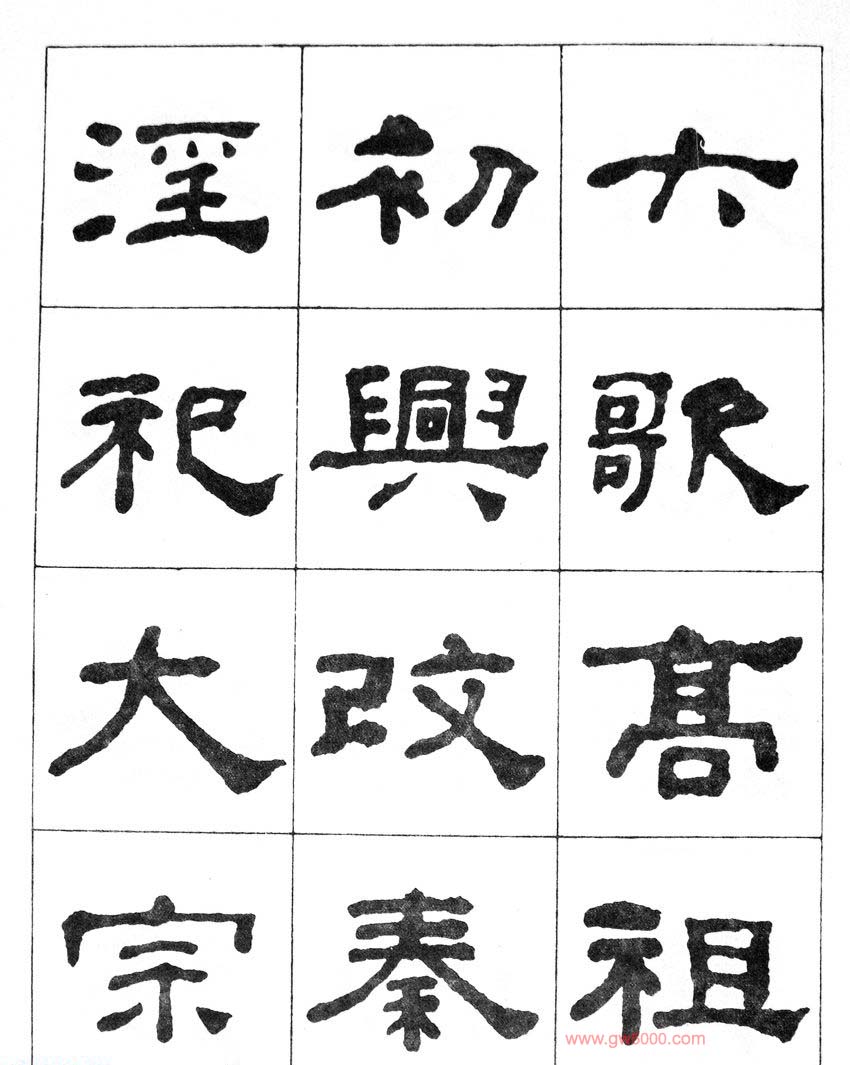 六歌高祖
初興改秦
淫祀大宗
www.gw6000.com